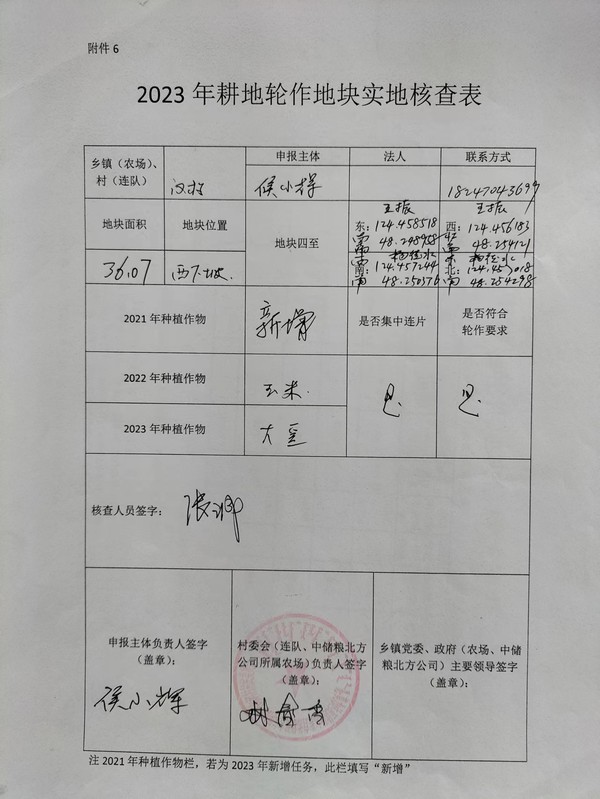 附件 6
2023 年耕地轮作地块实地核查表
乡镇（农场）、
村（连队）
汉古
申报主体
侯小辉
法人
联系方式
1824704369
地块面积
36.07
地块位置
西下坡
地块四至
王振
东：124.458518
48.248958
王振
西：124.456183
48.254121
南：124.457244
48.250576
北：124.457018
48.254298
2021 年种植作物
新增
是否集中连片
是否符合
轮作要求
2022 年种植作物
玉米
2023 年种植作物
大豆
是
是
核查人员签字：
申报主体负责人签字
（盖章）：
侯小辉
村委会（连队、中储粮北方
公司所属农场）负责人签字
（盖章）：
乡镇党委、政府（农场、中储
粮北方公司）主要领导签字
（盖章）：
注 2021 年种植作物栏，若为 2023 年新增任务，此栏填写“新增”